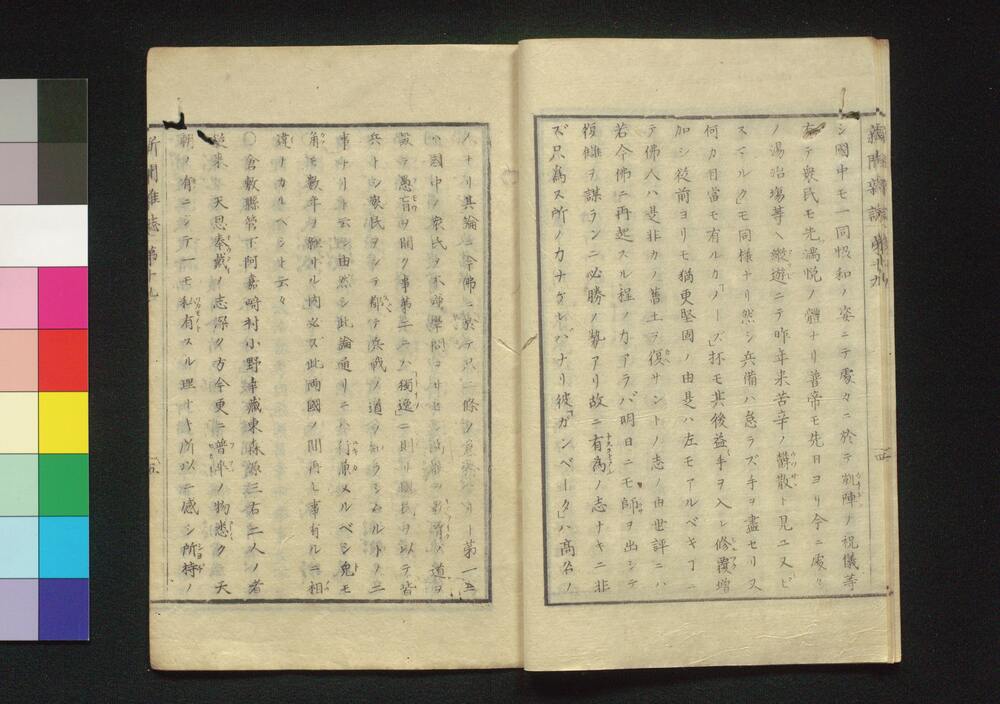 シ國中モ一同怡和ノ姿ニテ處々ニ於テ凱陣ノ祝儀等
有テ衆民モ先満悦ノ體ナリ普帝モ先日ヨリ今ニ處々
ノ湯治場等ヘ緩遊ニテ昨年来苦辛ノ欝散ト見ユスビ
スマルク」モ同様ナリ然シ兵備ハ怠ラズ手ヲ盡セリス
何カ目當モ有ルカノ
抔モ其後益手ヲ入レ修覆増
加シ從前ヨリモ猶更堅固ノ由是ハ左モアルベキ丁ニ
テ佛人ハ是非カノ舊土ヲ復サントノ志ノ由世評ニハ
若今佛ニ再起スル程ノ力アラバ明日ニモ師ヲ出シテ
復讎ヲ謀ランニ必勝ノ勢アリ故ニ有為ノ志ナキニ非
ズ只為ス所ノ力ナケレバナリ彼「ガンベータ」ハ高名ノ
新聞雑誌 第十九
四
人ナリ其論ニ今佛ニ於テ只二條ノ
アリ第一ニ
ハ國中ノ衆民ヲ不残學問
ノ道ヲ
設テ愚盲ヲ開ク事第二ニハ「獨逸」ニ則リ國民ヲ以テ皆
兵トシ衆民ヲシテ都テ兵戦ノ道ヲ知ラシムルトノ二
事ナリト云シ由然シ此論通リニハ行届メルベシ兎モ
角モ數年ヲ歴サル内必ズ此両國ノ間再ヒ事有ルニ相
違ナカルヘシト云々
○倉敷縣管下阿嘉﨑村小野卓藏東森源三右二人ノ者
從来天恩奉戴ノ志深ク方今更ニ普率ノ物悉ク天
朝ノ有ニシテ一モ私有スル理ナキ所以ニ感シ所持ノ
新聞雑誌 第十九
五